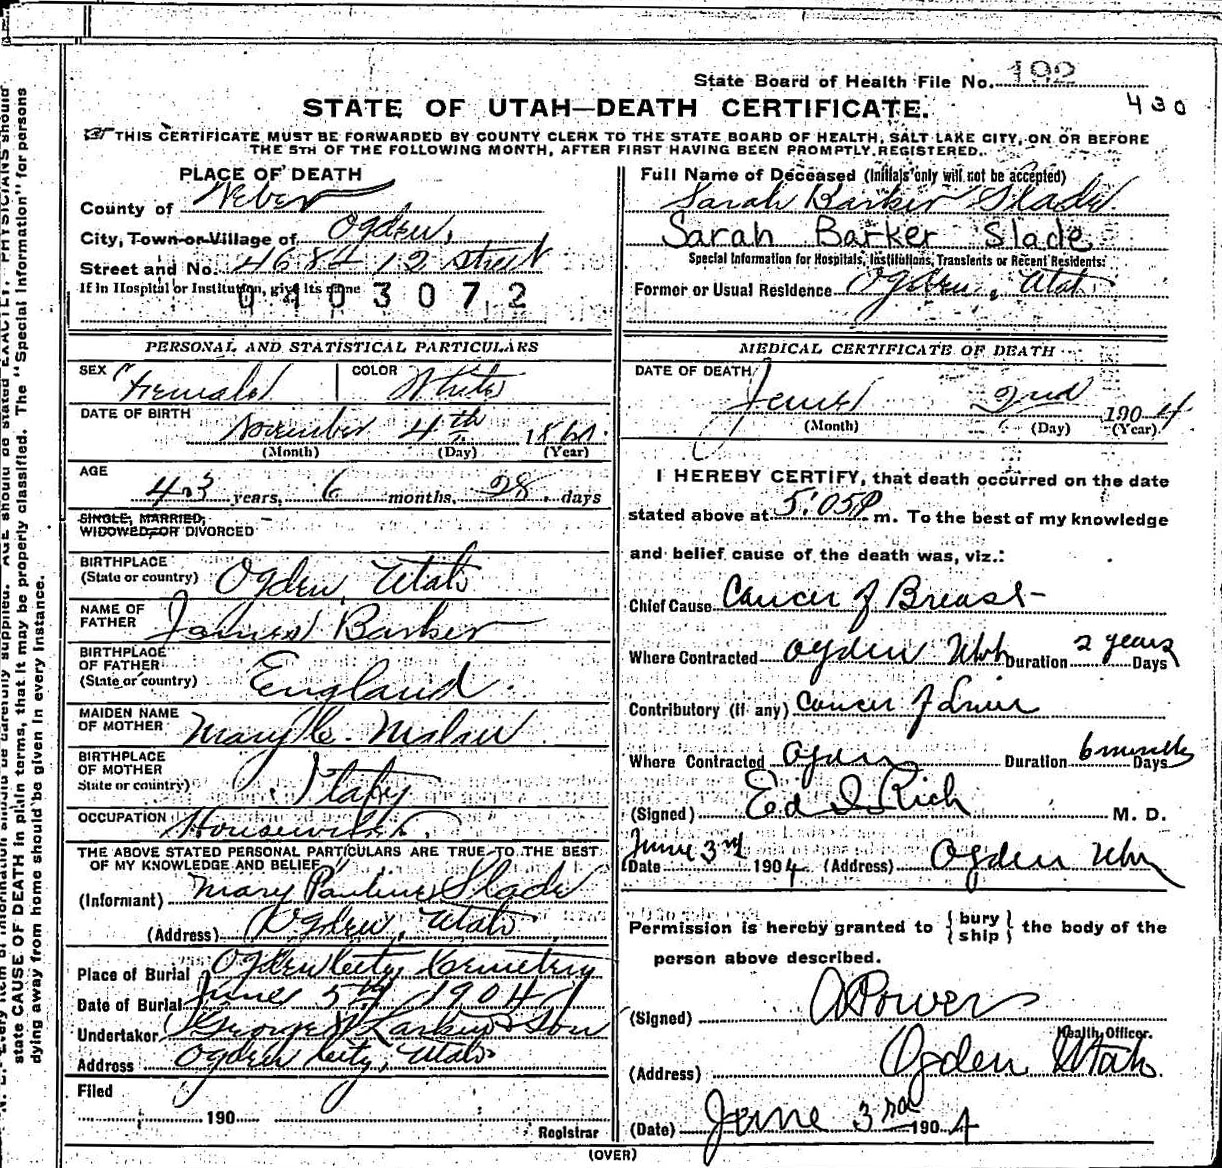 State Board of Health File No. 192
STATE OF UTAH—DEATH CERTIFICATE.
430
THIS CERTIFICATE MUST BE FORWARDED BY COUNTY CLERK TO THE STATE BOARD OF HEALTH, SALT LAKE CITY, ON OR BEFORE
THE 5TH OF THE FOLLOWING MONTH, AFTER FIRST HAVING BEEN PROMPTLY REGISTERED.
PLACE OF DEATH
County of Weber
City, Town or Village of Ogden,
Street and No. 468 12 street
If in Hospital or Institution, give its name
0403072
PERSONAL AND STATISTICAL PARTICULARS
SEX Female COLOR White
DATE OF BIRTH
November 4th 1860
(Month) (Day) (Year)
AGE
43 years, 6 months, 28 days
SINGLE, MARRIED,
WIDOWED, OR DIVORCED
BIRTHPLACE
(State or country) Ogden, Utah
NAME OF
FATHER James Barker
BIRTHPLACE
OF FATHER
(State or country) England.
MAIDEN NAME
OF MOTHER Mary
BIRTHPLACE
OF MOTHER
State or country) Italy
OCCUPATION Housewife.
THE ABOVE STATED PERSONAL PARTICULARS ARE TRUE TO THE BEST
OF MY KNOWLEDGE AND BELIEF
(Informant) Mary Pauline Slade
(Address) Ogden, Utah
Place of Burial Ogden City Cemetery
Date of Burial June 5th 1904
Undertaker George W Larkin & Son
Address Ogden City, Utah
Filed
190
Registrar
Full Name of Deceased (Initials only will not be accepted)
Sarah Barker Slade
Sarah Barker Slade
Special Information for Hospitals, Institutions, Transients or Recent Residents:
Former or Usual Residence Ogden, Utah
MEDICAL CERTIFICATE OF DEATH
DATE OF DEATH
June 2nd 1904
(Month) (Day) (Year)
I HEREBY CERTIFY, that death occurred on the date
stated above at 5:05 P m. To the best of my knowledge
and belief cause of the death was, viz.:
Chief Cause Cancer of Breast
Where Contracted Ogden Utah Duration 2 years Days
Contributory (if any) Cancer of Liver
Where Contracted Ogden Duration 6 months Days
(Signed) Ed I Rich M. D.
Date June 3rd 1904 (Address) Ogden Utah
Permission is hereby granted to { bury ship } the body of the
person above described.
(Signed) A Power
Health Officer.
(Address) Ogden Utah
(Date) June 3rd 1904
(OVER)
state CAUSE OF DEATH in plain terms, that it may be properly classified. The "Special Information" for persons
dying away from home should be given in every instance.